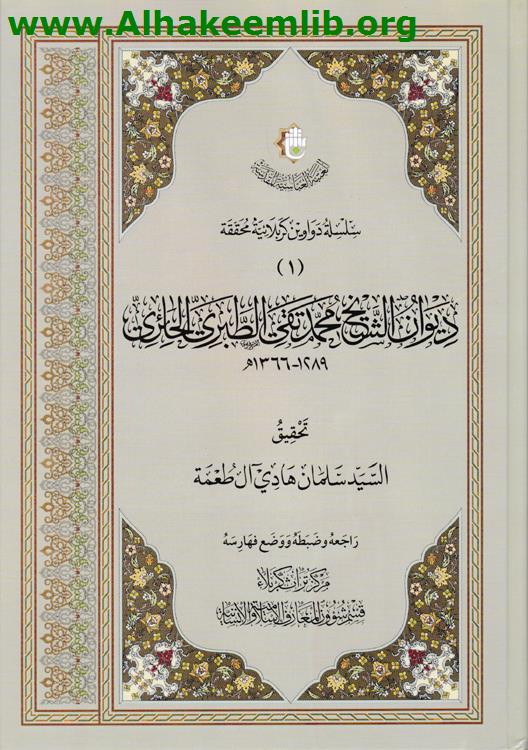 www.Alhakeemlib.org
العتبة العباسية المقدسة
سلسلة دواوين كربلائية محققة
(١)
ديوان الشيخ محمد تقي الطبري الحائري
١٢٨٩-١٣٦٦هـ
تحقيق
السيد سلمان هادي آل طعمة
راجعه وضبطه ووضع فهارسه
مركز تراث كربلاء
قسم شؤون المعارف الإسلامية والإنسانية